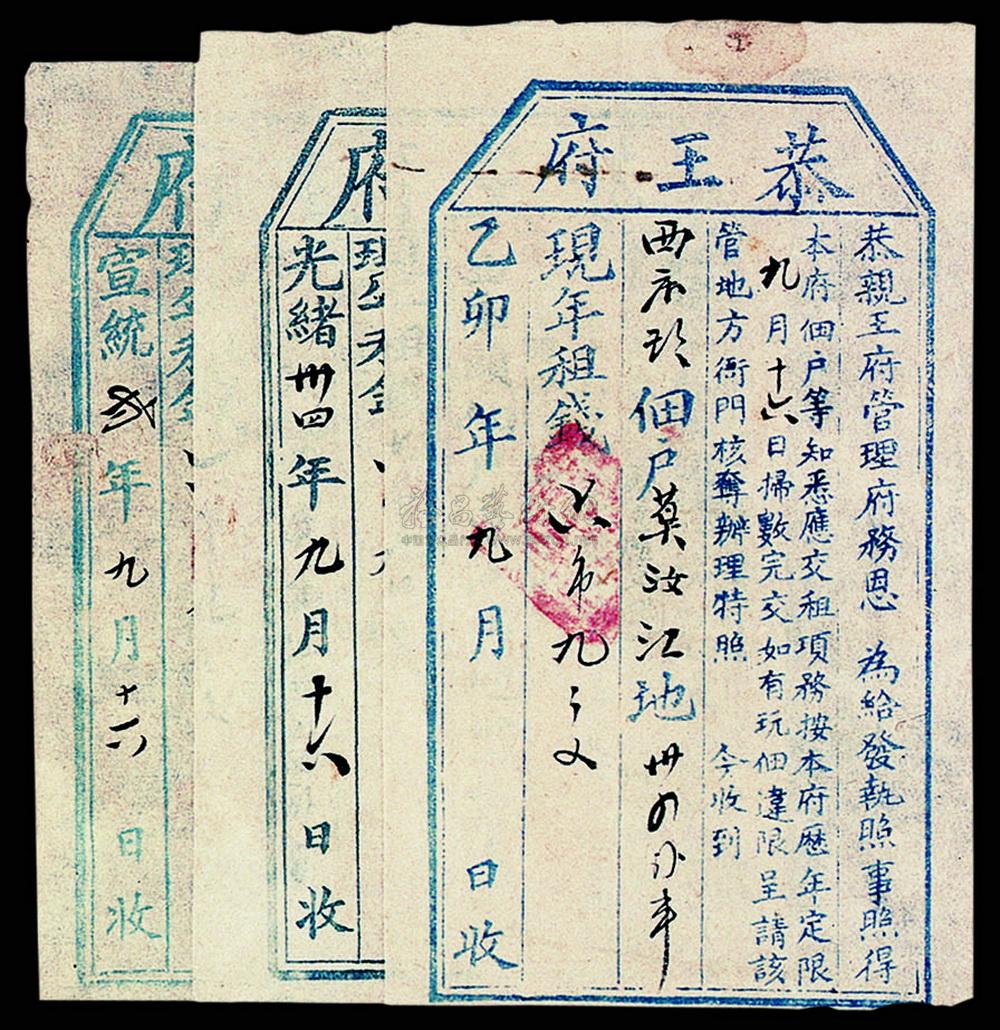 恭王府
恭親王府管理府務恩　為給發執照事照得
本府佃戶等知悉應交租項務按本府歷年定限
九月十六日掃數完交如有玩佃違限呈請該
管地方衙門核奪辦理特照　今收到
西　佃戶莫汝江地卅
現年租錢　九
乙卯年九月　日收
府
光緒卅四年九月十六日收
府
宣統　年九月十六日收